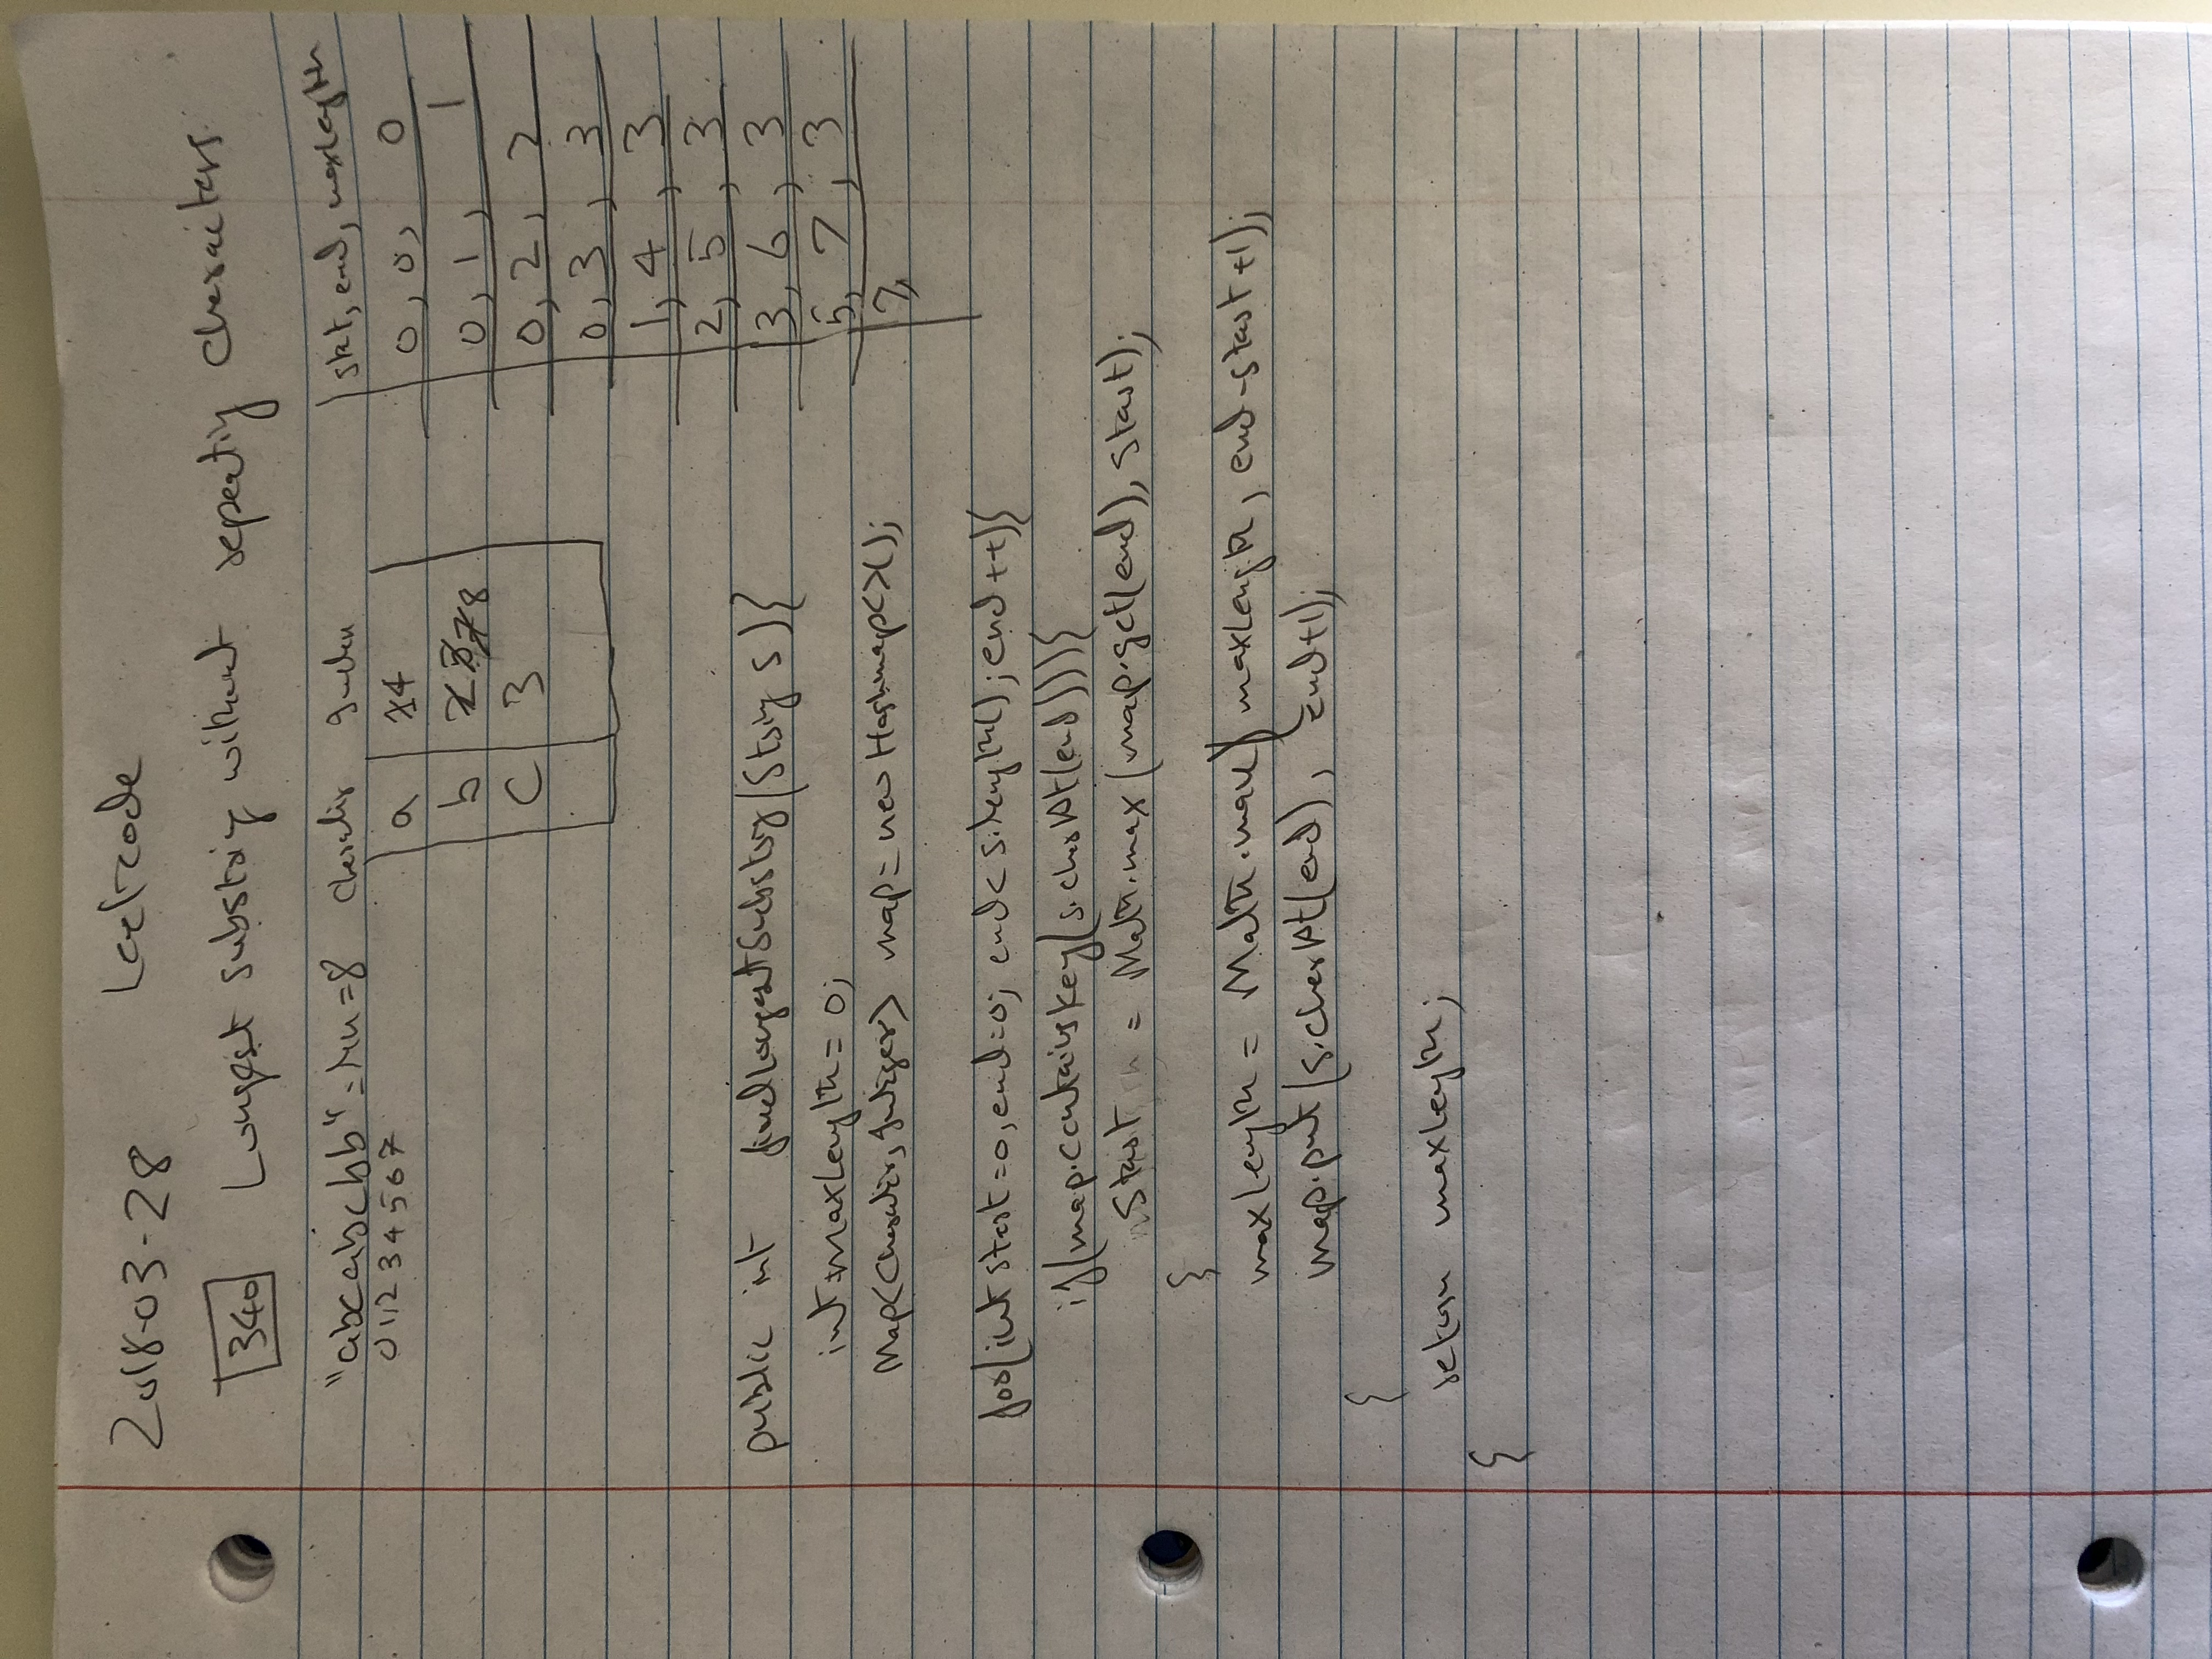 2018-03-28 Leetcode
340 Longest substring without repeating characters.
"abcabcbb" = len = 8 Character Index
0 1 2 3 4 5 6 7
a 1 4
b 2 5 7 8
c 3
start, end, maxLength
0, 0, 0
0, 1, 1
0, 2, 2
0, 3, 3
1, 4, 3
2, 5, 3
3, 6, 3
5, 7, 3
7,
public int findLongestSubstring(String s){
int maxLength = 0;
Map<Character, Integer> map = new Hashmap<>();
for(int start=0, end=0; end < s.length(); end++){
if(map.containsKey(s.charAt(end))){
start = Math.max(map.get(end), start);
}
maxLength = Math.max(maxLength, end-start+1);
map.put(s.charAt(end), end+1);
}
return maxLength;
}